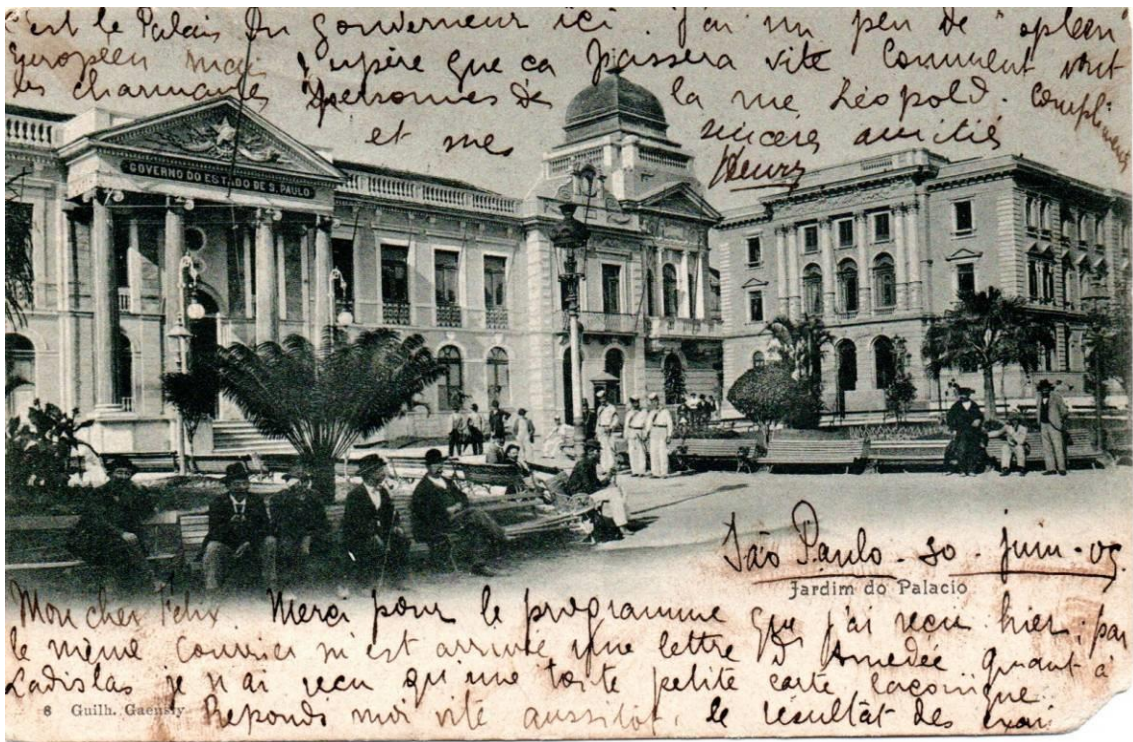 C'est le Palais Du Gouverneur ici. J'ai un peu de "spleen"
européen mais j'espère que ca passera vite Comment vont
les charmantes personnes de la rue Léopold. Compliments
et mes sincères amitiés
Henry
GOVERNO DO ESTADO DE S. PAULO
São Paulo - 30 - juin - 05
Jardim do Palacio
Mon cher Felix. Merci pour le programme que j'ai reçu hier; par
le même Courrier m'est arrivée une lettre D'Amedée Quant à
Ladislas je n'ai reçu qu'une toute petite carte laconique.
6 Guilh. Gaensly Reponds moi vite aussitot, le résultât des exa